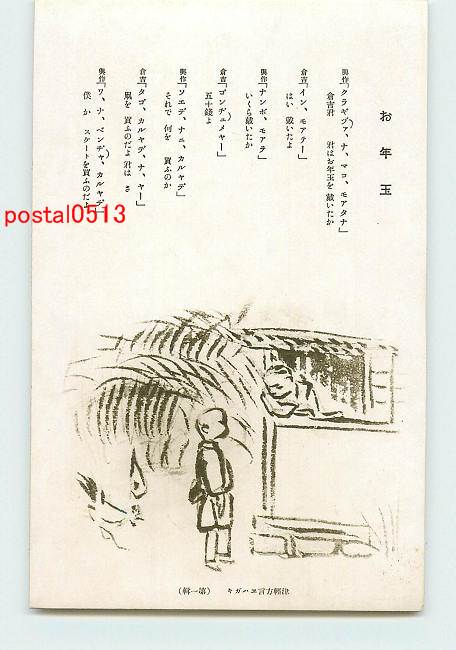 お年玉
與作「クラギヅァ、ナ、マコ、モアタナ」
倉吉君 君はお年玉を戴いたか
倉吉「イン、モアテー」
はい 戴いたよ
與作「ナンボ、モアラ」
いくら戴いたか
倉吉「ゴンヂュメヤー」
五十錢よ
與作「ソエデ、ナニ、カルヤデ」
それで 何を 買ふのか
倉吉「タゴ、カルヤデ、ナ、ヤー」
凧を 買ふのだよ 君は さ
與作「ワ、ナ、ベンヂャ、カルヤデ」
僕 か スケートを買ふのだよ
postal0513
津輕方言エハガキ (第一輯)